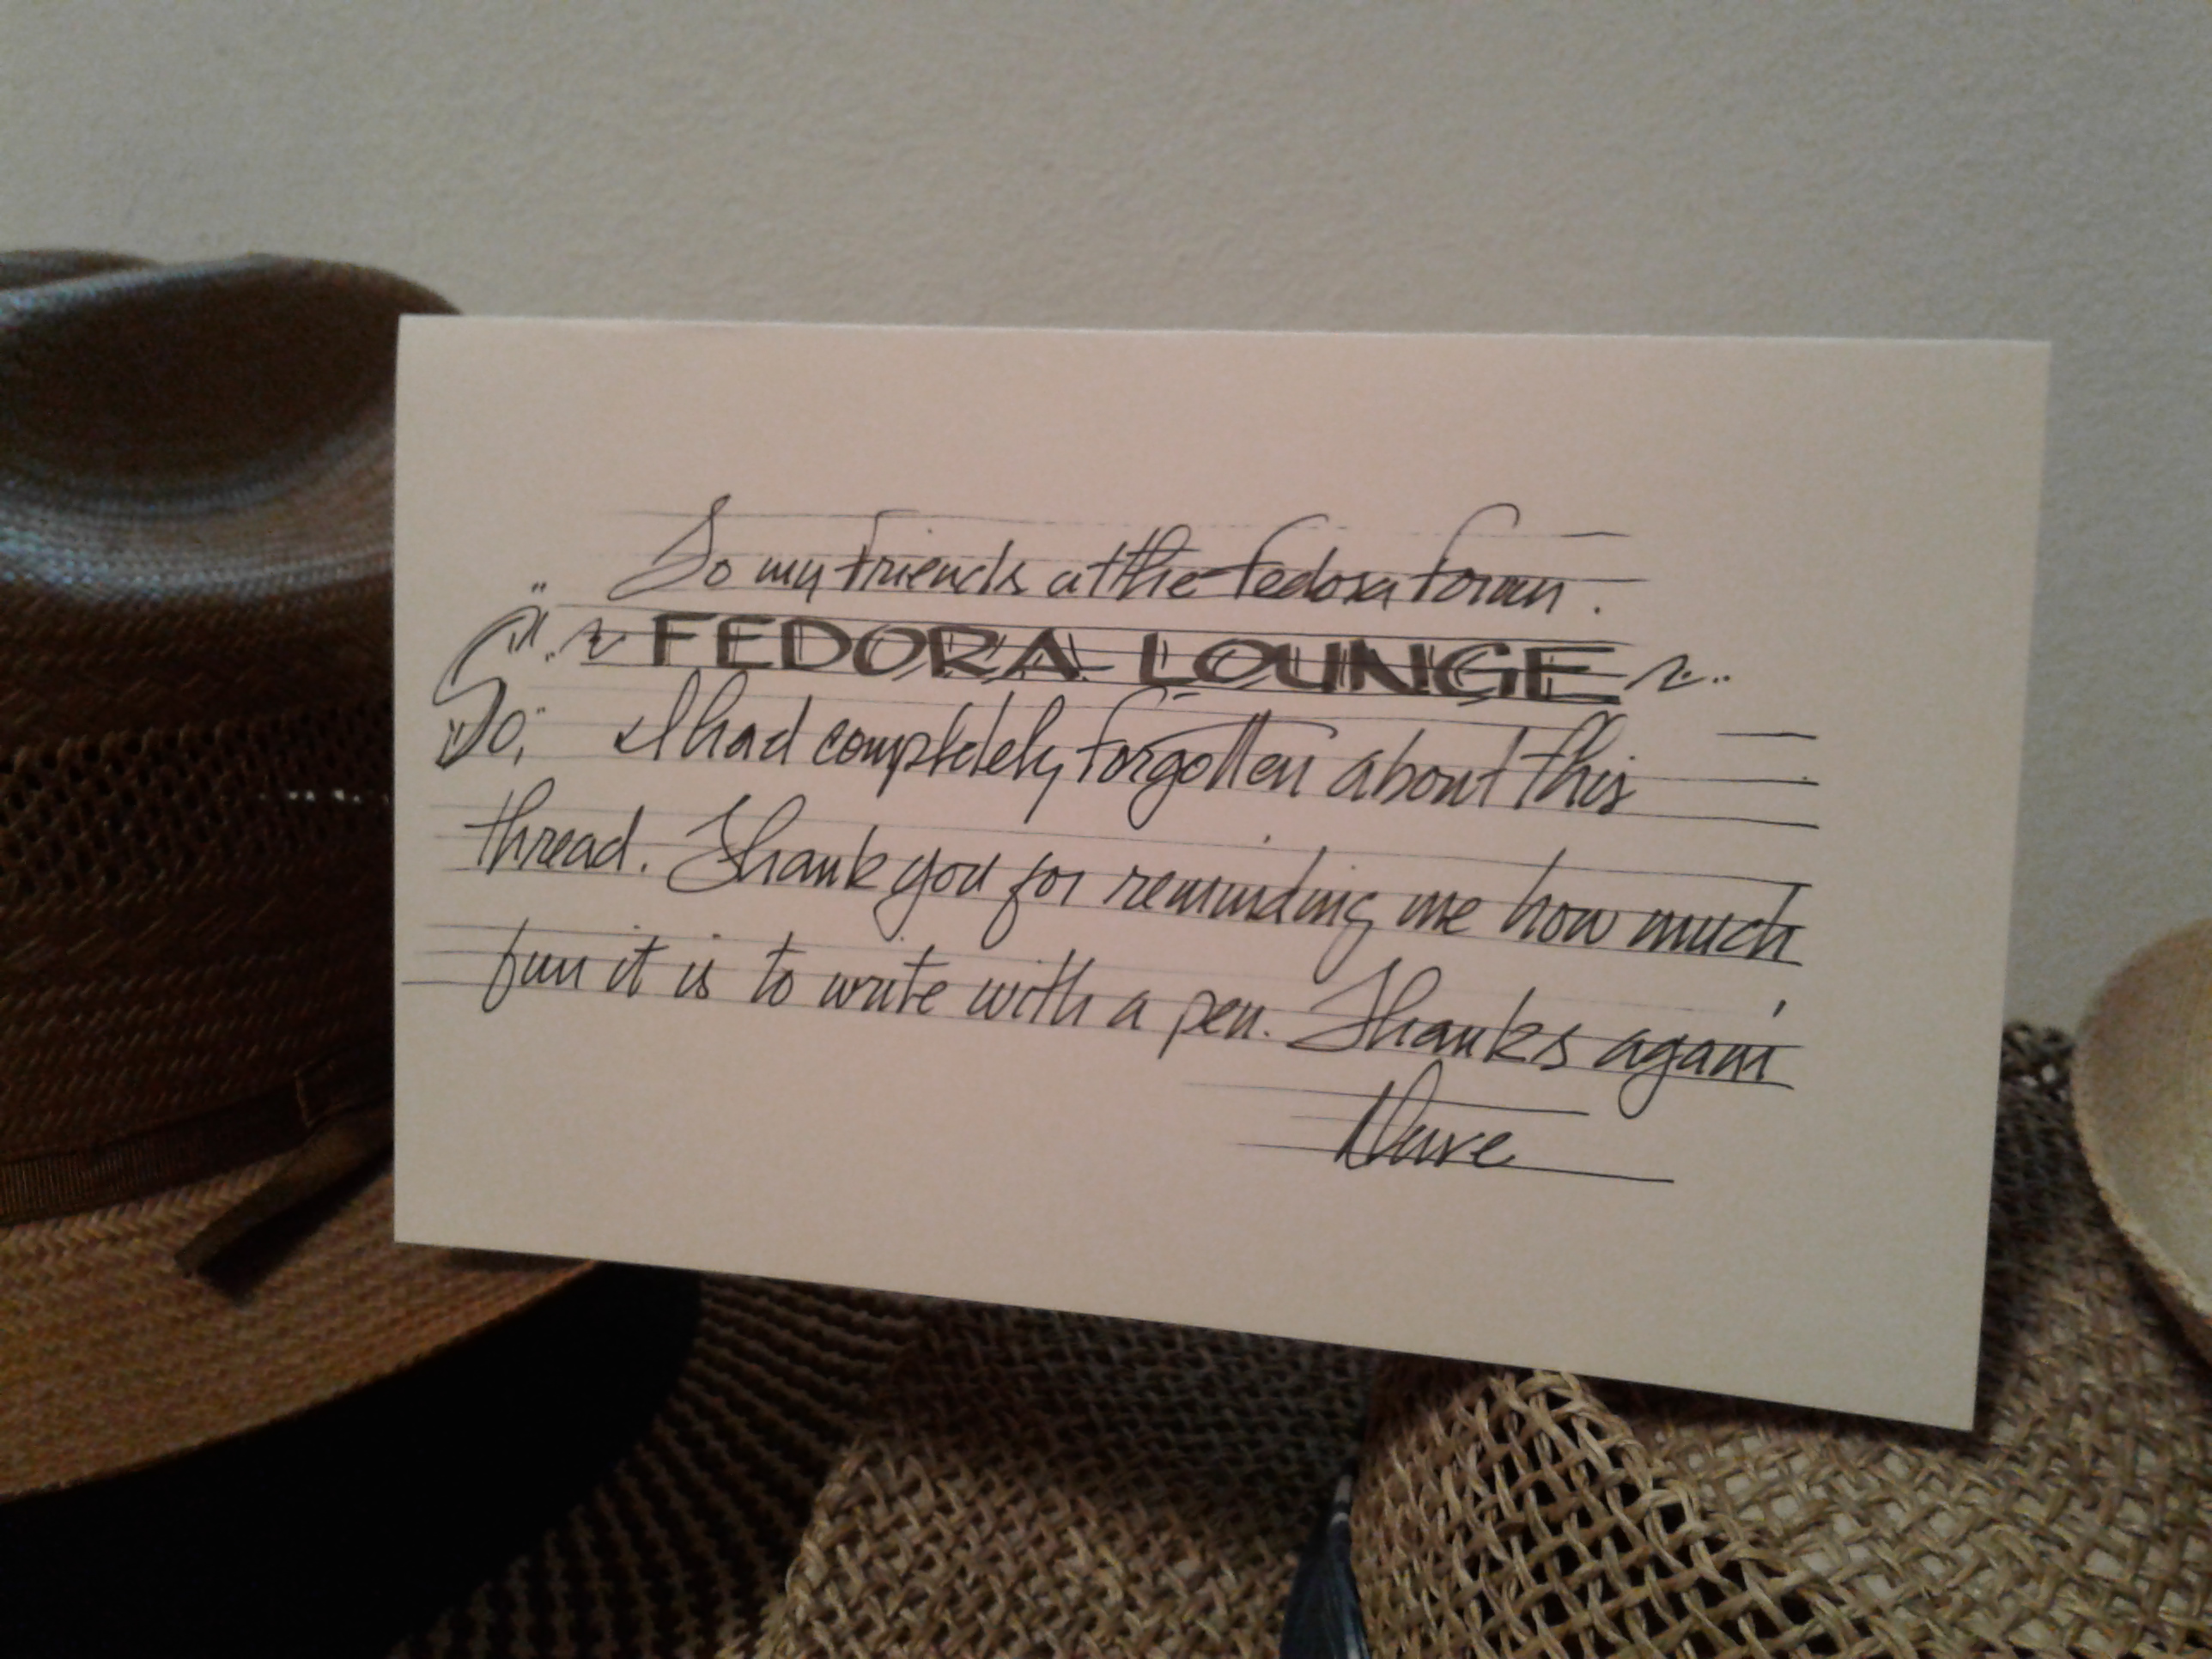 So my friends at the fedora forum.
~ FEDORA LOUNGE ~
So, I had completely forgotten about this
thread. Thank you for reminding me how much
fun it is to write with a pen. Thanks again
Dave